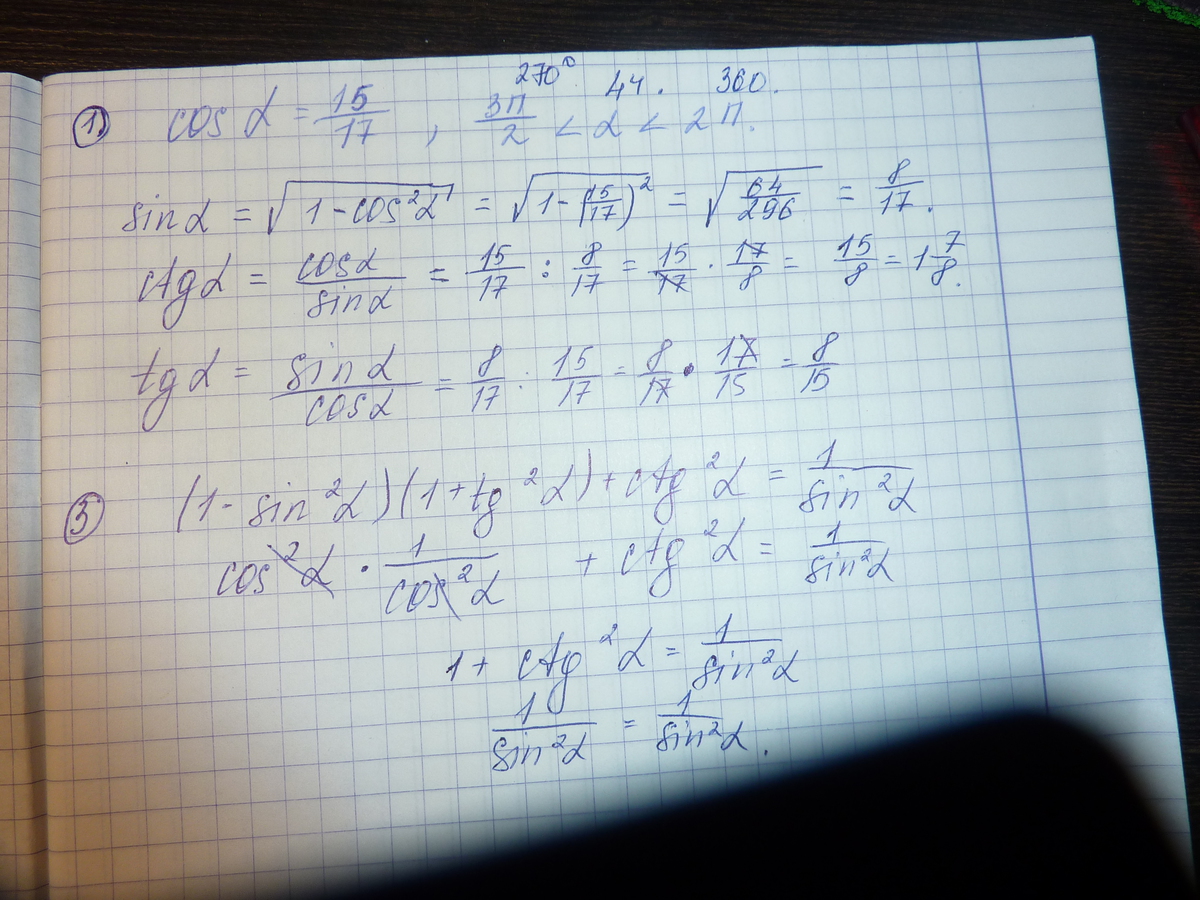 270° 4ч. 360.
① cos α = 15/17 , 3π/2 < α < 2π.
sin α = √(1 - cos²α) = √(1 - (15/17)²) = √(64/296) = 8/17.
ctg α = cos α/sin α = 15/17 : 8/17 = 15/17 · 17/8 = 15/8 = 1 7/8.
tg α = sin α/cos α = 8/17 : 15/17 = 8/17 · 17/15 = 8/15
③ (1 - sin²α)(1 + tg²α) + ctg²α = 1/sin²α
cos²α · 1/cos²α + ctg²α = 1/sin²α
1 + ctg²α = 1/sin²α
1/sin²α = 1/sin²α.